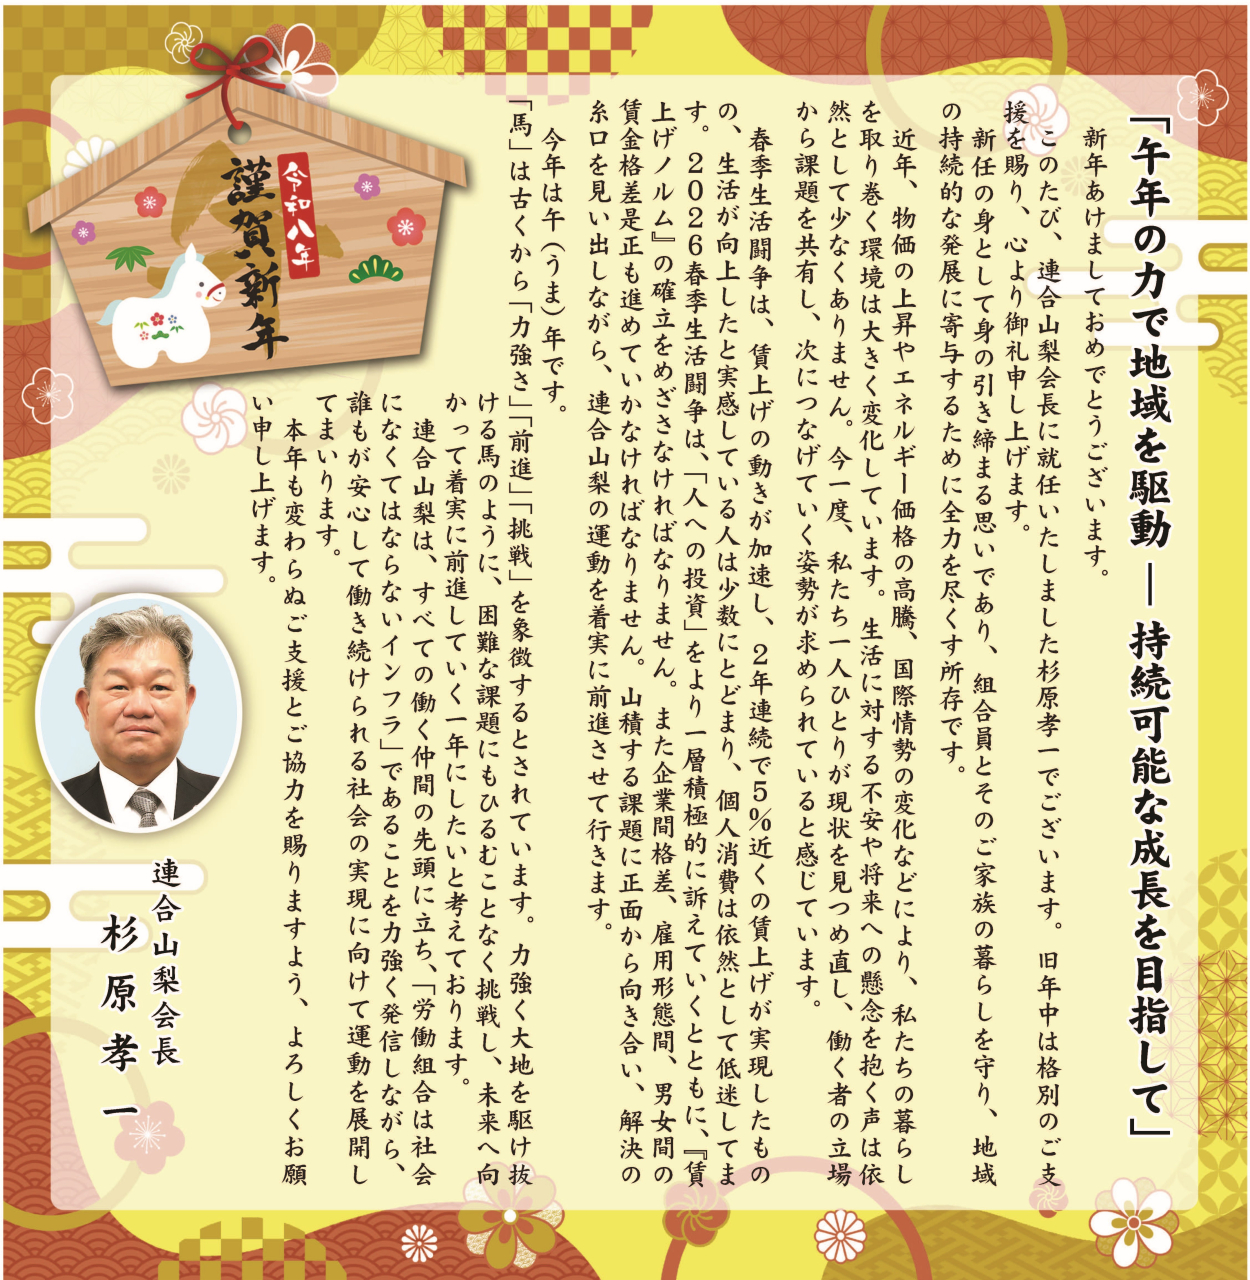 「午年の力で地域を駆動 ― 持続可能な成長を目指して」
新年あけましておめでとうございます。
このたび、連合山梨会長に就任いたしました杉原孝一でございます。旧年中は格別のご支
援を賜り、心より御礼申し上げます。
新任の身として身の引き締まる思いであり、組合員とそのご家族の暮らしを守り、地域
の持続的な発展に寄与するために全力を尽くす所存です。
近年、物価の上昇やエネルギー価格の高騰、国際情勢の変化などにより、私たちの暮らし
を取り巻く環境は大きく変化しています。生活に対する不安や将来への懸念を抱く声は依
然として少なくありません。今一度、私たち一人ひとりが現状を見つめ直し、働く者の立場
から課題を共有し、次につなげていく姿勢が求められていると感じています。
春季生活闘争は、賃上げの動きが加速し、2年連続で5%近くの賃上げが実現したもの
の、生活が向上したと実感している人は少数にとどまり、個人消費は依然として低迷してま
す。2026春季生活闘争は、「人への投資」をより一層積極的に訴えていくとともに、『賃
上げノルム』の確立をめざさなければなりません。また企業間格差、雇用形態間、男女間の
賃金格差是正も進めていかなければなりません。山積する課題に正面から向き合い、解決の
糸口を見い出しながら、連合山梨の運動を着実に前進させて行きます。
今年は午(うま)年です。
「馬」は古くから「力強さ」「前進」「挑戦」を象徴するとされています。力強く大地を駆け抜
ける馬のように、困難な課題にもひるむことなく挑戦し、未来へ向
かって着実に前進していく一年にしたいと考えております。
連合山梨は、すべての働く仲間の先頭に立ち、「労働組合は社会
になくてはならないインフラ」であることを力強く発信しながら、
誰もが安心して働き続けられる社会の実現に向けて運動を展開し
てまいります。
本年も変わらぬご支援とご協力を賜りますよう、よろしくお願
い申し上げます。
令和八年
謹賀新年
連合山梨会長
杉原孝一